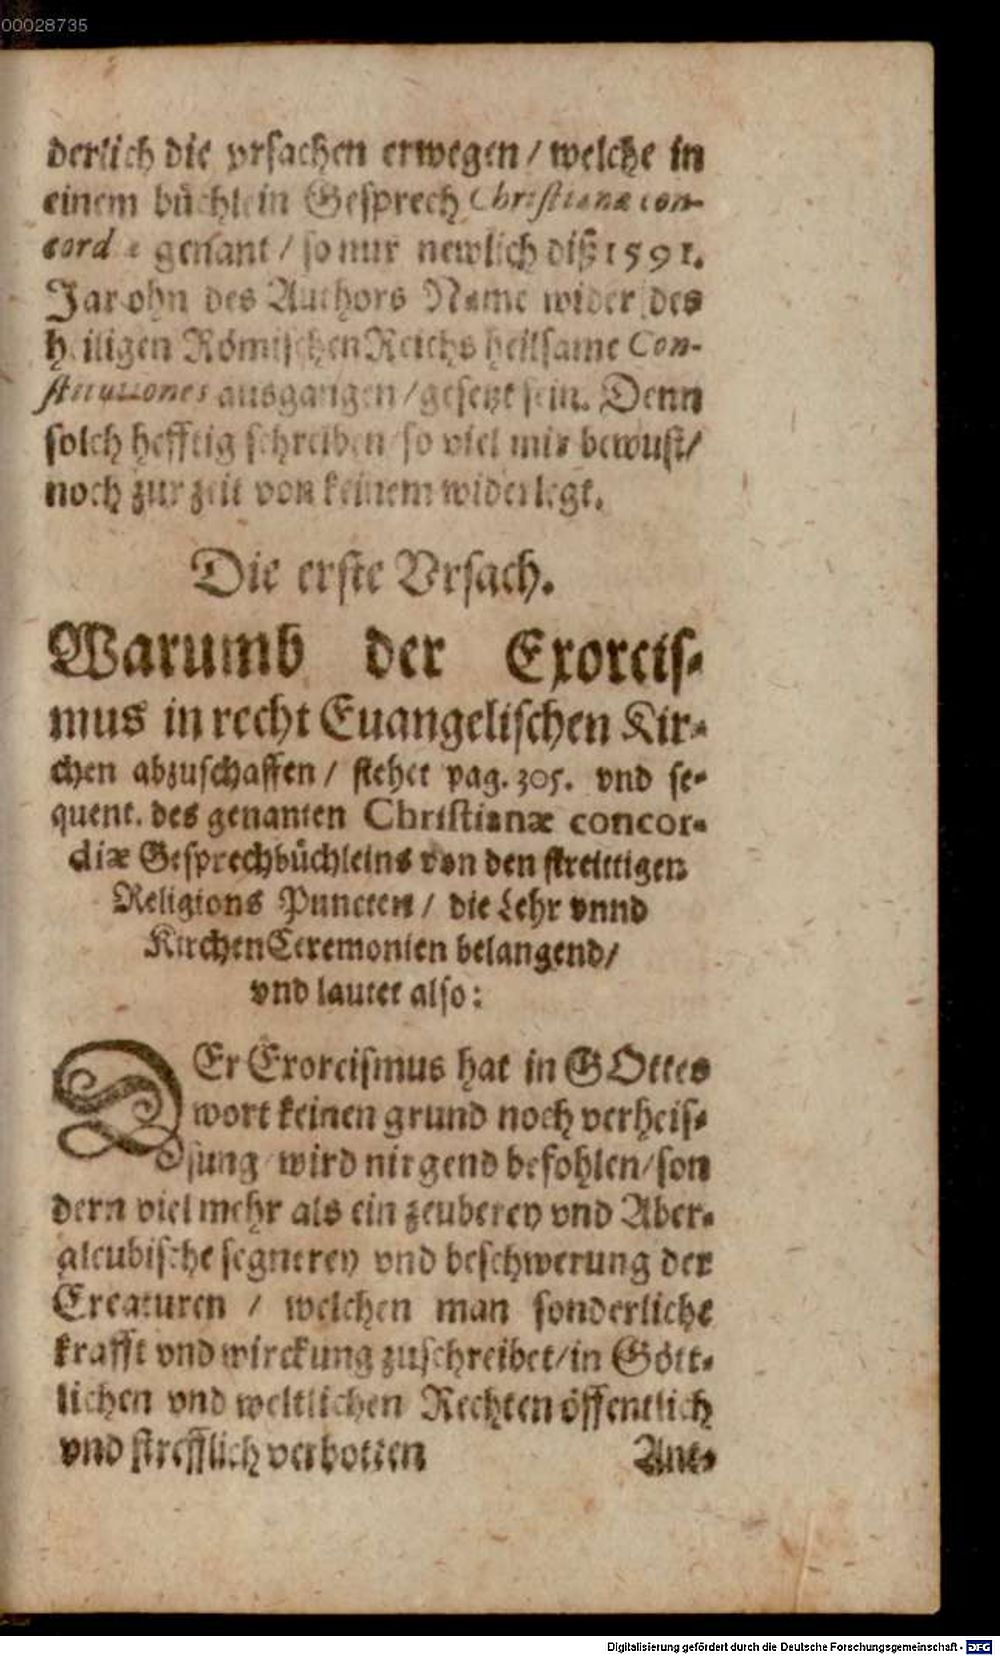 00028735
derlich die vrsachen erwegen / welche in
einem büchlein Gesprech Christianæ con-
cordiæ genant / so nur newlich diß 1591.
Jar ohn des Authors Name wider des
heiligen Römischen Reichs heilsame Con-
stitutiones ausgangen / gesetzt sein. Denn
solch hefftig schreiben so viel mir bewust /
noch zur zeit von keinem widerlegt.
Die erste Vrsach.
Warumb der Exorcis-
mus in recht Euangelischen Kir-
chen abzuschaffen / stehet pag. 305. vnd se-
quent. des genanten Christianæ concor-
diæ Gesprechbüchleins von den streittigen
Religions Puncten / die Lehr vnnd
KirchenCeremonien belangend /
vnd lautet also:
DEr Exorcismus hat in GOttes
wort keinen grund noch verheis-
sung / wird nirgend befohlen / son
dern viel mehr als ein zeuberey vnd Aber-
gleubische segnerey vnd beschwerung der
Creaturen / welchen man sonderliche
krafft vnd wirckung zuschreibet / in Gött-
lichen vnd weltlichen Rechten öffentlich
vnd strefflich verbotten
Ant-
Digitalisierung gefördert durch die Deutsche Forschungsgemeinschaft - DFG